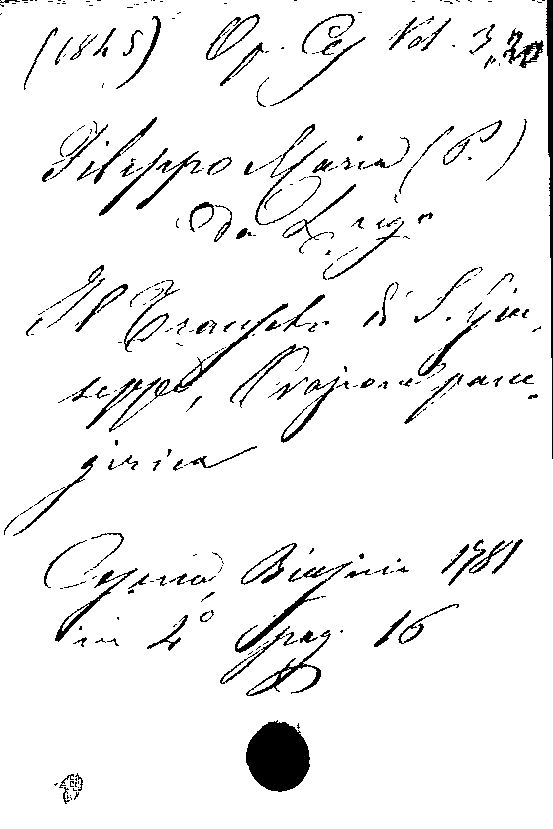 (1845) Op. Ces Vol. 3,20
Filippo Maria (P.)
Da
Il Transito di S. Giu-
seppe, Orazione pane-
girica
Cesena, Biasini 1781
in 4° pag. 16